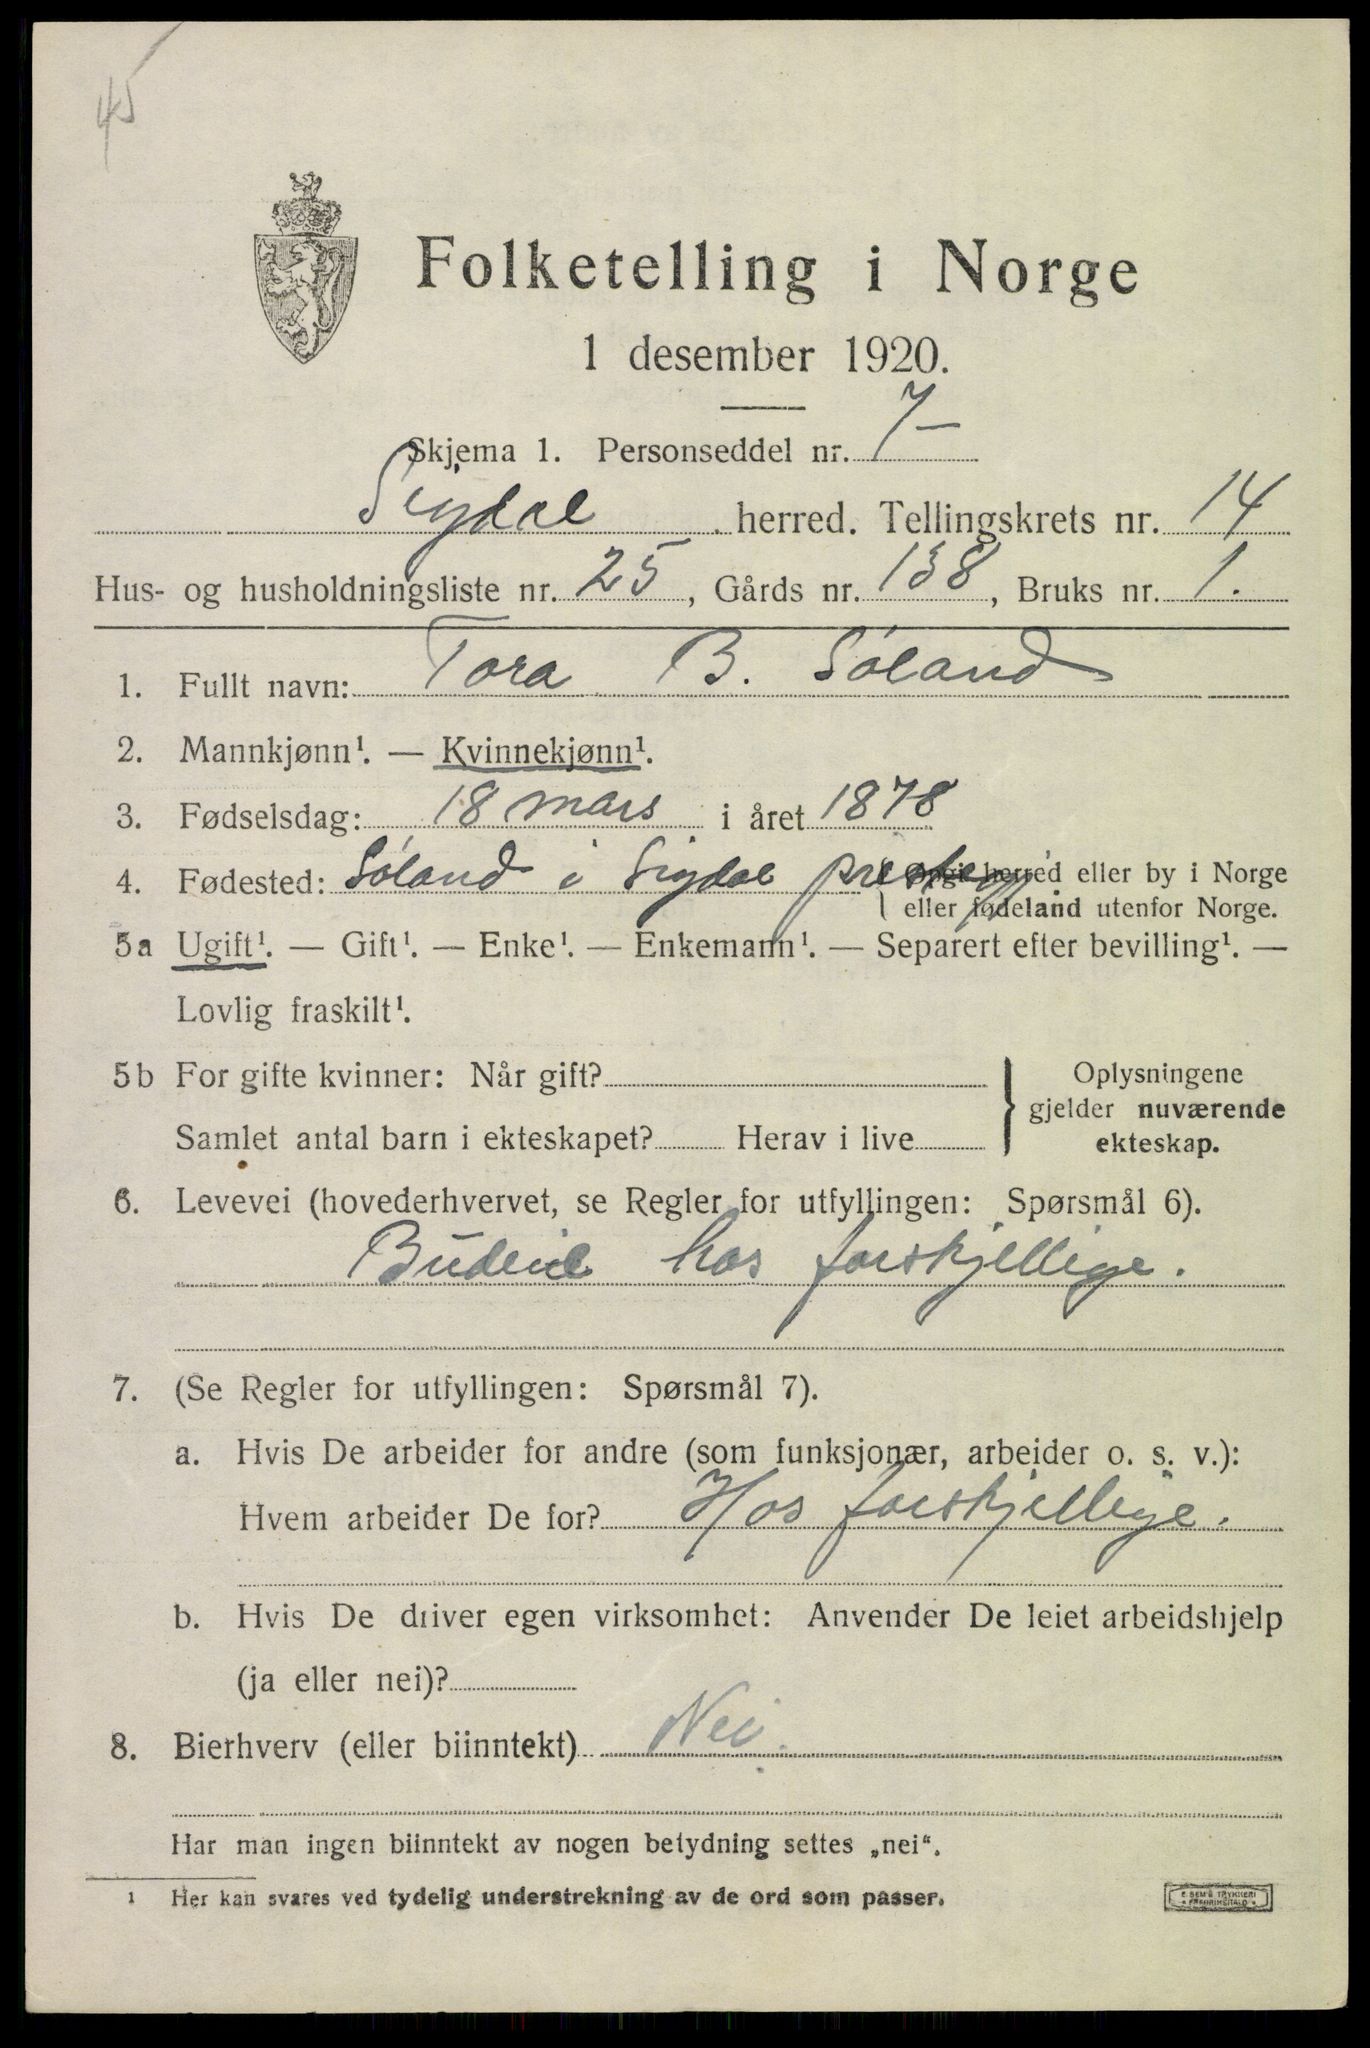 45
Folketelling i Norge
1 desember 1920.
Skjema 1. Personseddel nr. 7-
Sigdal herred. Tellingskrets nr. 14
Hus- og husholdningsliste nr. 25, Gårds nr. 138, Bruks nr. 1.
1. Fullt navn: Tora B. Søland
2. Mannkjønn¹. — Kvinnekjønn¹.
3. Fødselsdag: 18 mars i året 1878
4. Fødested: Søland i Sigdal prestegj {Opgi herred eller by i Norge
eller fødeland utenfor Norge.
5a Ugift¹. — Gift¹. — Enke¹. — Enkemann¹. — Separert efter bevilling¹. —
Lovlig fraskilt¹.
5b For gifte kvinner: Når gift? } Oplysningene
gjelder nuværende
Samlet antal barn i ekteskapet? Herav i live ekteskap.
6. Levevei (hovederhvervet, se Regler for utfyllingen: Spørsmål 6).
Budeie hos forskjellige.
7. (Se Regler for utfyllingen: Spørsmål 7).
a. Hvis De arbeider for andre (som funksjonær, arbeider o. s. v.):
Hvem arbeider De for? Hos forskjellige.
b. Hvis De driver egen virksomhet: Anvender De leiet arbeidshjelp
(ja eller nei)?
8. Bierhverv (eller biinntekt) Nei.
Har man ingen biinntekt av nogen betydning settes „nei“.
¹ Her kan svares ved tydelig understrekning av de ord som passer.
E. SEM'S TRYKKERI
FREDRIKSHALD